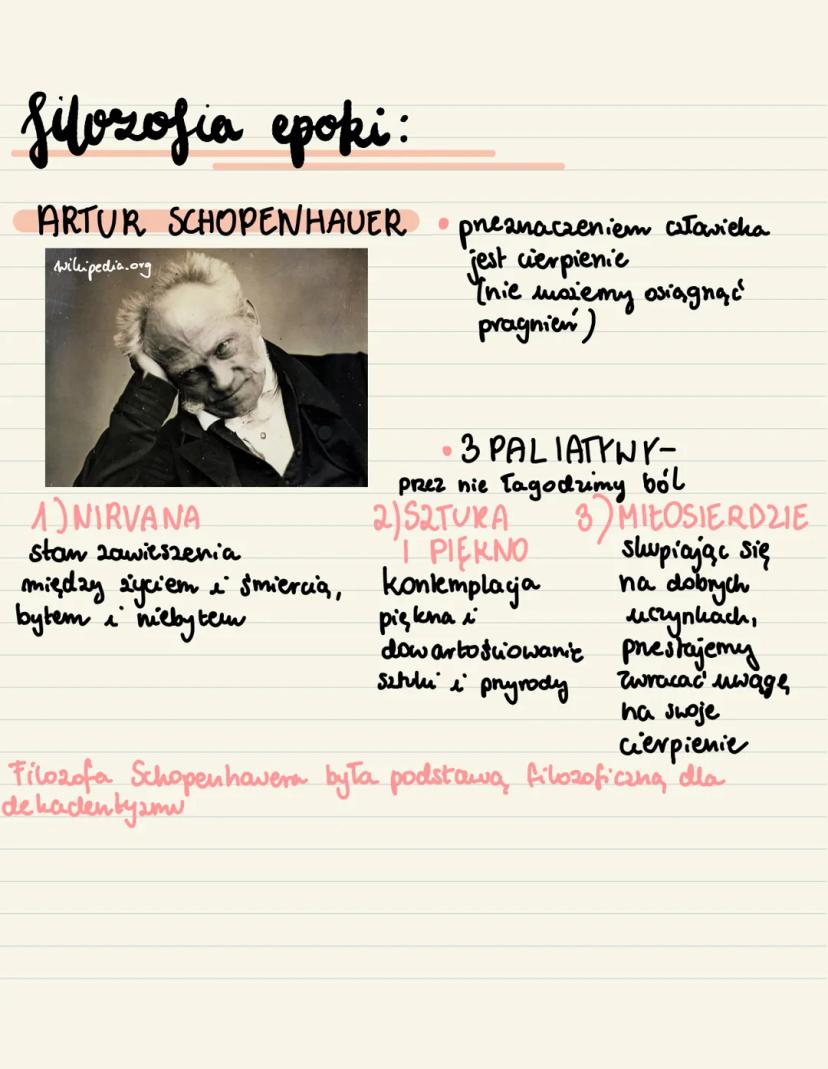 filozofia epoki:
ARTUR SCHOPENHAUER
wikipedia.org
• przeznaczeniem człowieka
jest cierpienie
(nie możemy osiągnąć
pragnień)
• 3 PALIATYWY-
przez nie łagodzimy ból
1) NIRVANA
stan zawieszenia
między życiem i śmiercią,
bytem i niebytem
2) SZTUKA
I PIĘKNO
kontemplacja
piękna i
dowartościowanie
sztuki i przyrody
3) MIŁOSIERDZIE
skupiając się
na dobrych
uczynkach,
przestajemy
zwracać uwagę
na swoje
cierpienie
Filozofa Schopenhauera była podstawą filozoficzną dla
dekadentyzmu